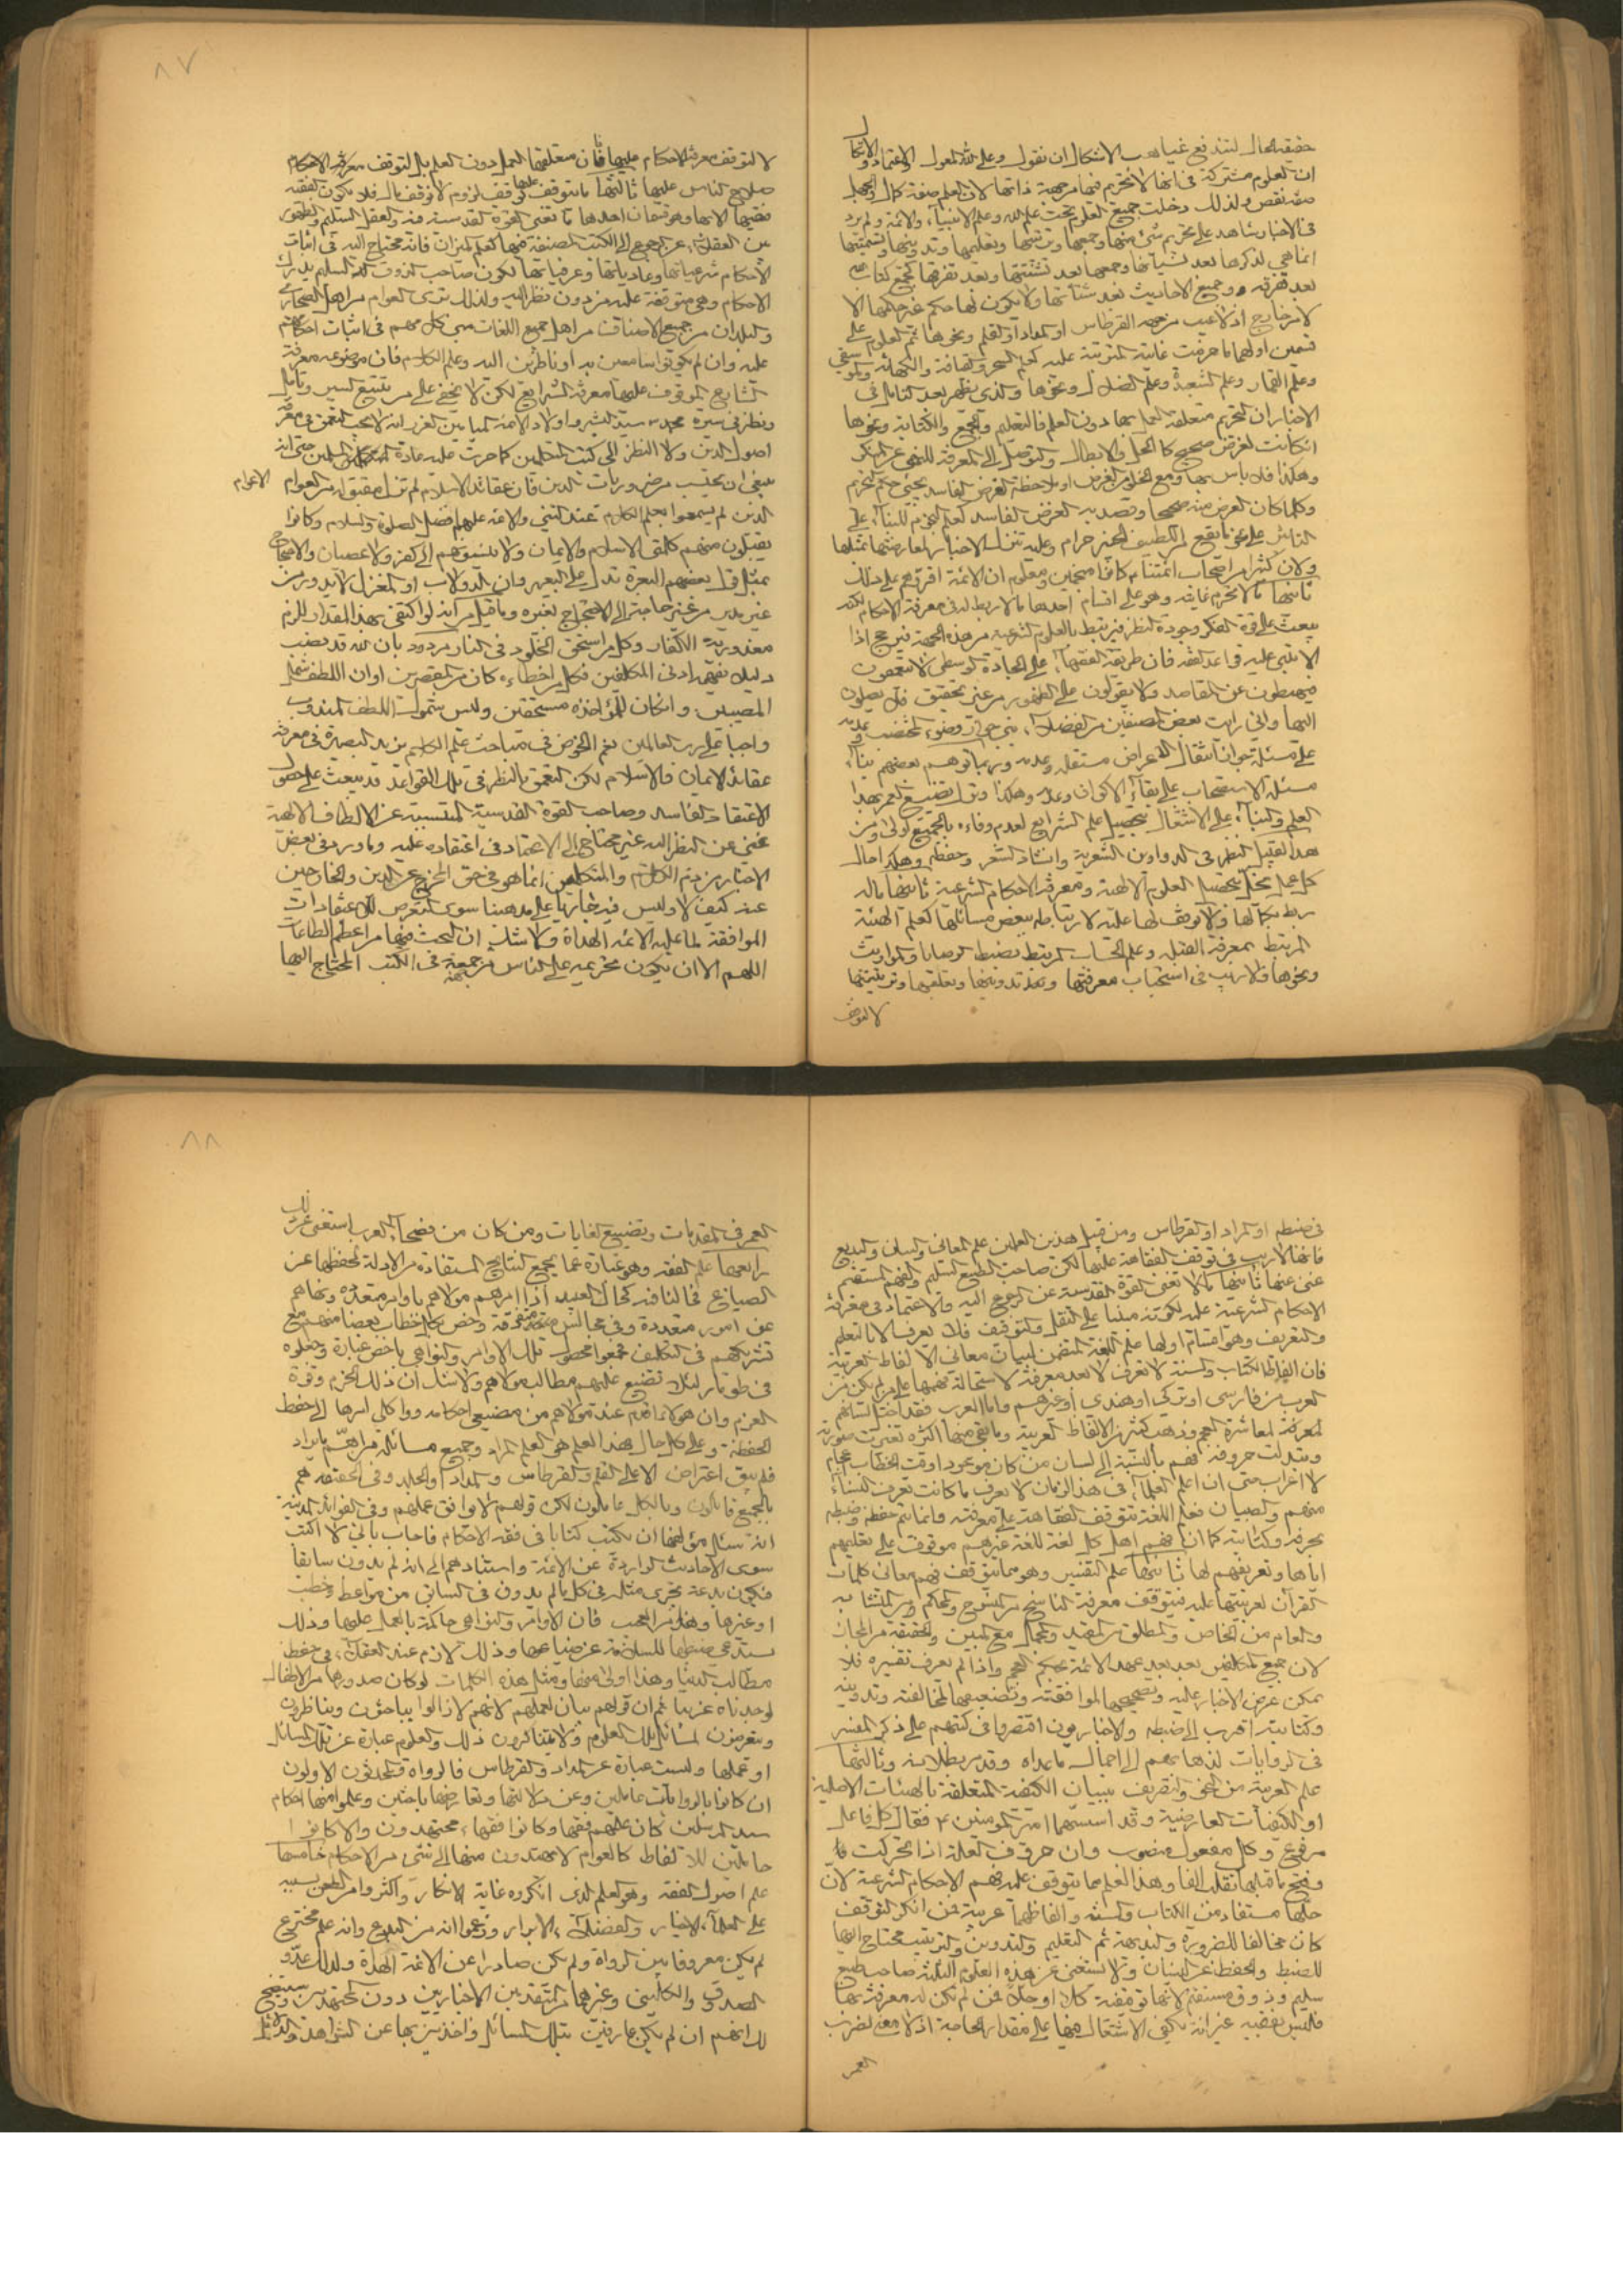 ٨٧
حقيقة الحال لتندفع غياهب الاشكال ان نقول وعلى الله المعول والاعتماد والاتكال
ان العلوم مشتركة فى انها لا تحريم فيها من جهة ذاتها لان العلم صفة كمال والجهل
صفة نقص ولذلك دخلت جميع العلوم تحت علم الله وعلم الانبياء والائمة ولم يرد
فى الاخبار شاهد على تحريم شئ منها وجمعها وترتيبها وتعليمها وتدوينها وتسميتها
انما هى لذكرها بعد نسيانها وجمعها بعد تشتتها وبعد تفرقها كجمع كتاب الله
بعد تفرقه وجميع الاحاديث بعد شتاتها ولا يكون لها حكم غير حكمها الا
لامر خارج اذ لا عيب من جهة القرطاس او المداد او القلم ونحوها ثم العلوم على
قسمين اولهما ما حرمت غايته المترتبة عليه كعلم السحر والقيافة والكهانة والموسيقى
وعلم القمار وعلم الشعبذة وعلم الضلال ونحوها والذى يظهر بعد التأمل فى
الاخبار ان التحريم متعلقه العمل بها دون العلم فالتعليم والتعلم والكتابة ونحوها
ان كانت لغرض صحيح كالحل والابطال والتوصل الى المعرفة للنهى عن المنكر
وهكذا فلا باس بها ومع الخلو من الغرض او ملاحظة الغرض الفاسد يجئ حكم التحريم
وكلما كان الغرض منه صحيحا وقصد به الغرض الفاسد كعلم النجوم للبناء على
التاثير على نحو ما يقع من اللطيف الخبير حرام وعليه تنزل الاخبار لمعارضتها بمثلها
ولان كثيرا من اصحاب ائمتنا كانوا منجمين ومعلوم ان الائمة اقروهم على ذلك
ثانيها ما لا تحرم غايته وهو على اقسام احدها ما لا ربط له فى معرفة الاحكام لكنه
يبعث على قوة الفكر وجودة النظر فيرتبط بالعلوم الشرعية من هذه الجهة فيرجح اذا
لا يبتنى عليه قواعد الفقه فان طريقة الفقهاء على الجادة الوسطى لا يتعمقون
فيهبطون عن المقاصد ولا يقولون على الظهور من غير تحقيق فلا يصلون
اليها وانى رايت بعض المصنفين من الفضلاء بنى جواز وضوء شخص وعدمه
على مسئلة جواز انتقال الاعراض مستقلة وعدمه وربما توهم بعضهم بناء
مسئلة الاستصحاب على بقاء الاكوان وعدمه وهكذا وترك تضييع العمر بهذا
العلم والبناء على الاشتغال بتحصيل علم الشرايع لعدم وفائه بالجميع اولى ومن
هذا القبيل النظر فى الدواوين الشعرية وانشاد الشعر وحفظه وهكذا حال
كل علم يخل بتحصيل العلوم الالهية ومعرفة الاحكام الشرعية ثانيها ما له
ربط بكمالها ولا توقف لها عليه لارتباطه ببعض مسائلها كعلم الهيئة
المرتبط بمعرفة القبلة وعلم الحساب المرتبط بضبط الوصايا والمواريث
ونحوها ولا ريب فى استحباب معرفتها وتدوينها وتعليقها وترتيبها
لا لتوقف
لا لتوقف معرفة الاحكام عليها فان متعلقها العمل دون العلم بل لتوقف معرفة الاحكام
صلاح الناس عليها ثالثها ما يتوقف عليها توقف لزوم لا توقف كمال فلا يكون الفقيه
فقيها الا بها وهو قسمان احدها ما تغنى القوة القدسية فيه والعقل السليم والظهور
بين العقلاء عن الرجوع الى الكتب المصنفة فيها كعلم الميزان فانه محتاج اليه فى اثبات
الاحكام شرعياتها وعادياتها وعرفياتها لكون صاحب الذوق السليم يدرك
الاحكام وهى متوقفة عليه من دون نظر اليه ولذلك ترى العوام من اهل الصحارى
والبلدان من جميع الاصناف من اهل جميع اللغات مبنى كل منهم فى اثبات احكامهم
عليه وان لم يكونوا سامعين به او ناظرين اليه وعلم الكلام فان موضوعه معرفة
الشارع الموقوف عليها معرفة الشرايع لكن لا يخفى على من تتبع السير وتأمل
ونظر فى سيرة محمد سيد البشر واولاده الائمة الميامين الغرر انه لا يجب التعمق فى معرفة
اصول الدين ولا النظر الى كتب المتكلمين كما جرت عليه عادة المسلمين حتى انه
ينبغى ان يحسب من ضروريات الدين فان عقائد الاسلام لم تزل مقبولة من العوام الاعوام
الذين لم يسمعوا بعلم الكلام عند النبى والائمة عليهم افضل الصلوة والسلام وكانوا
يقبلون منهم كلمتى الاسلام والايمان ولا ينسبونهم الى كفر ولا عصيان والاحتجاج
بمثل قول بعضهم البعرة تدل على البعير وان الدولاب او المغزل لا يدور من
غير مدير من غير حاجة الى الاحتجاج بغيره وما قيل من انه لو اكتفى بهذا المقدار لزم
معذورية الكفار وكل من استحق الخلود فى النار مردود بان الله قد نصب
دليلا يفهمه ادنى المكلفين فكل من اخطاءه كان من المقصرين او ان اللطف شمل
المصيبين وان كان للمؤاخذة مستحقين وليس شمول اللطف المندوب
واجبا على رب العالمين نعم الخوض فى مباحث علم الكلام يزيد البصيرة فى معرفة
عقائد الايمان والاسلام لكن التعمق بالنظر فى تلك القواعد قد يبعث على حصول
الاعتقاد الفاسد وصاحب القوة القدسية المنبسبة عن الالطاف الالهية
غنى عن النظر اليه غير محتاج الى الاعتماد فى اعتقاده عليه وما ورد فى بعض
الاخبار من ذم الكلام والمتكلمين انما هو فى حق الخروج عن الدين والخارجين
عنه كيف لا وليس فيه غالبا على مذهبنا سوى التعرض للاعتقادات
الموافقة لما عليه الائمة الهداة ولا شك ان البحث فيها من اعظم الطاعات
اللهم الا ان يكون تحريمه على الناس من جهة جمعه فى الكتب المحتاج اليها
٨٨
فى ضبطه او المداد او القرطاس ومن قبيل هذين العلمين علم المعانى والبيان والبديع
فانها لا ريب فى توقف الفقاهة عليها لكن صاحب الطبع السليم والفهم المستقيم
غنى عنها ثانيها ما لا تغنى القوة القدسية عن الرجوع اليه والاعتماد فى معرفة
الاحكام الشرعية عليه لكونه مبنيا على النقل والتوقيف فلا يعرف الا بالتعلم
والتعريف وهو اقسام اولها علم اللغة المتضمن لبيان معانى الالفاظ العربية
فان الفاظ الكتاب والسنة لا تعرف الا بعد معرفة لاستحالة فهمها على من لم يكن من
العرب من فارسى او تركى او هندى او غيرهم واما العرب فقد اختل لسانهم
لمعرفة لمعاشرة العجم وذهب كثير من الالفاظ العربية وما بقى منها اكثره تغيرت صورته
وتبدلت حروفه فهم بالنسبة الى لسان من كان موجودا وقت الخطاب اعجام
لا اعراب حتى ان اعلم العلماء فى هذا الزمان لا يعرف ما كانت تعرف النساء
منهم والصبيان فعلم اللغة تتوقف الفقاهة على معرفته وانما يتم حفظه وضبطه
بحرفه وكتابته كما ان فهم اهل كل لغة للغة غيرهم موقوف على تعليمهم
اياها وتعريفهم لها ثانيها علم التفسير وهو مما تتوقف فهم معانى كلمات
القرآن لعربيتها عليه فتتوقف معرفة الناسخ من المنسوخ والمحكم من المتشابه
والعام من الخاص والمطلق من المقيد والمجمل مع المبين والحقيقة من المجاز
لان جميع المكلفين بعد بعيد عهد الائمة بحكم العجم واذا لم يعرف تفسيره فلا
يمكن عرض الاخبار عليه وتصحيحها لموافقته وتضعيفها لمخالفته وتدوينه
وكتابته اقرب الى ضبطه والاخباريون اقتصروا فى كتبهم على ذكر المفسر
فى الروايات لذهابهم الى اجمال ما عداه وقد مر بطلانه وثالثها
علم العربية من النحو والتصريف ببيان الكيفية المتعلقة بالهيئات الاصلية
او الكيفيات العارضية وقد اسسهما امير المومنين ع فقال كل فاعل
مرفوع وكل مفعول منصوب وان حروف العلة اذا تحركت وا
وفتح ما قبلها تقلب الفا وهذا العلم مما يتوقف عليه فهم الاحكام الشرعية لان
جلها مستفاد من الكتاب والسنة والفاظهما عربية فمن انكر التوقف
كان مخالفا للضرورة والبديهة ثم التعليم والتدوين والترتيب محتاج اليها
للضبط والحفظ عن النسيان ولا يستغنى عن هذه العلوم الثلثة صاحب طبع
سليم وذوق مستقيم لانها توقيفية كلا او جلا فمن لم تكن له معرفة بها
فليس بفقيه غير انه يكفى الاشتغال فيها على مقدار الحاجة اذ لا معنى لصرف
العمر
العمر فى المقدمات وتضييع الغايات ومن كان من فصحاء العرب استغنى عن ذلك
رابعها علم الفقه وهو عبارة عما يجمع النتايج المستفادة من الادلة لحفظها عن
الضياع فحالنا فيه كحال العبيد اذا امرهم مولاهم باوامر متعددة ونهاهم
عن امور متعددة وفى مجالس متفرقة وخص بكل خطاب بعضا منهم مع
تشريكهم فى التكليف فجمعوا محصول تلك الاوامر والنواهى باخص عبارة وجعلوه
فى طومار لئلا تضيع عليهم مطالب مولاهم ولا شك ان ذلك الحزم وقوة
العزم وان هؤلاء اقدم عند مولاهم من مضيعى احكامه وواكلى امرها الى حفظ
الحفظة وعلى كل حال فهذا العلم هو العلم المراد وجميع مسائله من اهم ما يراد
فلم يبق اعتراض الا على القلم والقرطاس والمداد والجلد وفى الحقيقة هم
بالجميع قائلون وبالكل عاملون لكن قولهم لا يوافق عملهم وفى الفوائد المدنية
انه سئل مؤلفها ان يكتب كتابا فى فقه الاحكام فاجاب بانى لا اكتب
سوى الاحاديث الواردة عن الائمة واستناد هم الى انه لم يدون سابقا
فيكون بدعة يجرى مثله فى كل ما لم يدون فى السابق من مواعظ وخطب
او غيرها وهذا من العجب فان الاوامر والنواهى حاكمة بالعمل عليها وذلك
يستدعى ضبطها للسلامة عن ضياعها وذلك لازم عند العقلاء فى حفظ
مطالب الدنيا وهذا اولى منها ومثل هذه الكلمات لو كان صدورها من الاطفال
لوجدناه غريبا ثم ان قولهم بيان لعملهم لانهم لا زالوا يباحثون ويناظرون
ويتعرضون لمسائل تلك العلوم ولا يتناكرون ذلك والعلوم عبارة عن تلك المسائل
او عملها وليست عبارة عن المداد والقرطاس فالرواة والمحدثون الاولون
ان كانوا بالروايات عاملين وعن دلالتها وتعارضها باحثين وعلموا منها احكام
سيد المرسلين كان علمهم فقها وكانوا فقهاء مجتهدون والا كانوا
حاملين للالفاظ كالعوام لا يهتدون منها الى شئ من الاحكام خامسها
علم اصول الفقه وهو العلم الذى انكروه غاية الانكار واكثروا من الطعن بسببه
على العلماء الاخيار والفضلاء الابرار وزعموا انه من البدع وانه علم مخترع
لم يكن معروفا بين الرواة ولم يكن صادرا عن الائمة الهداة ولذلك عدو
الصدوق والكلينى وغيرهما من المتقدمين الاخباريين دون المجتهدين ويتضح
لك انهم ان لم يكن عارفين بتلك المسائل واخذين بها عن الشواهد والدلائل